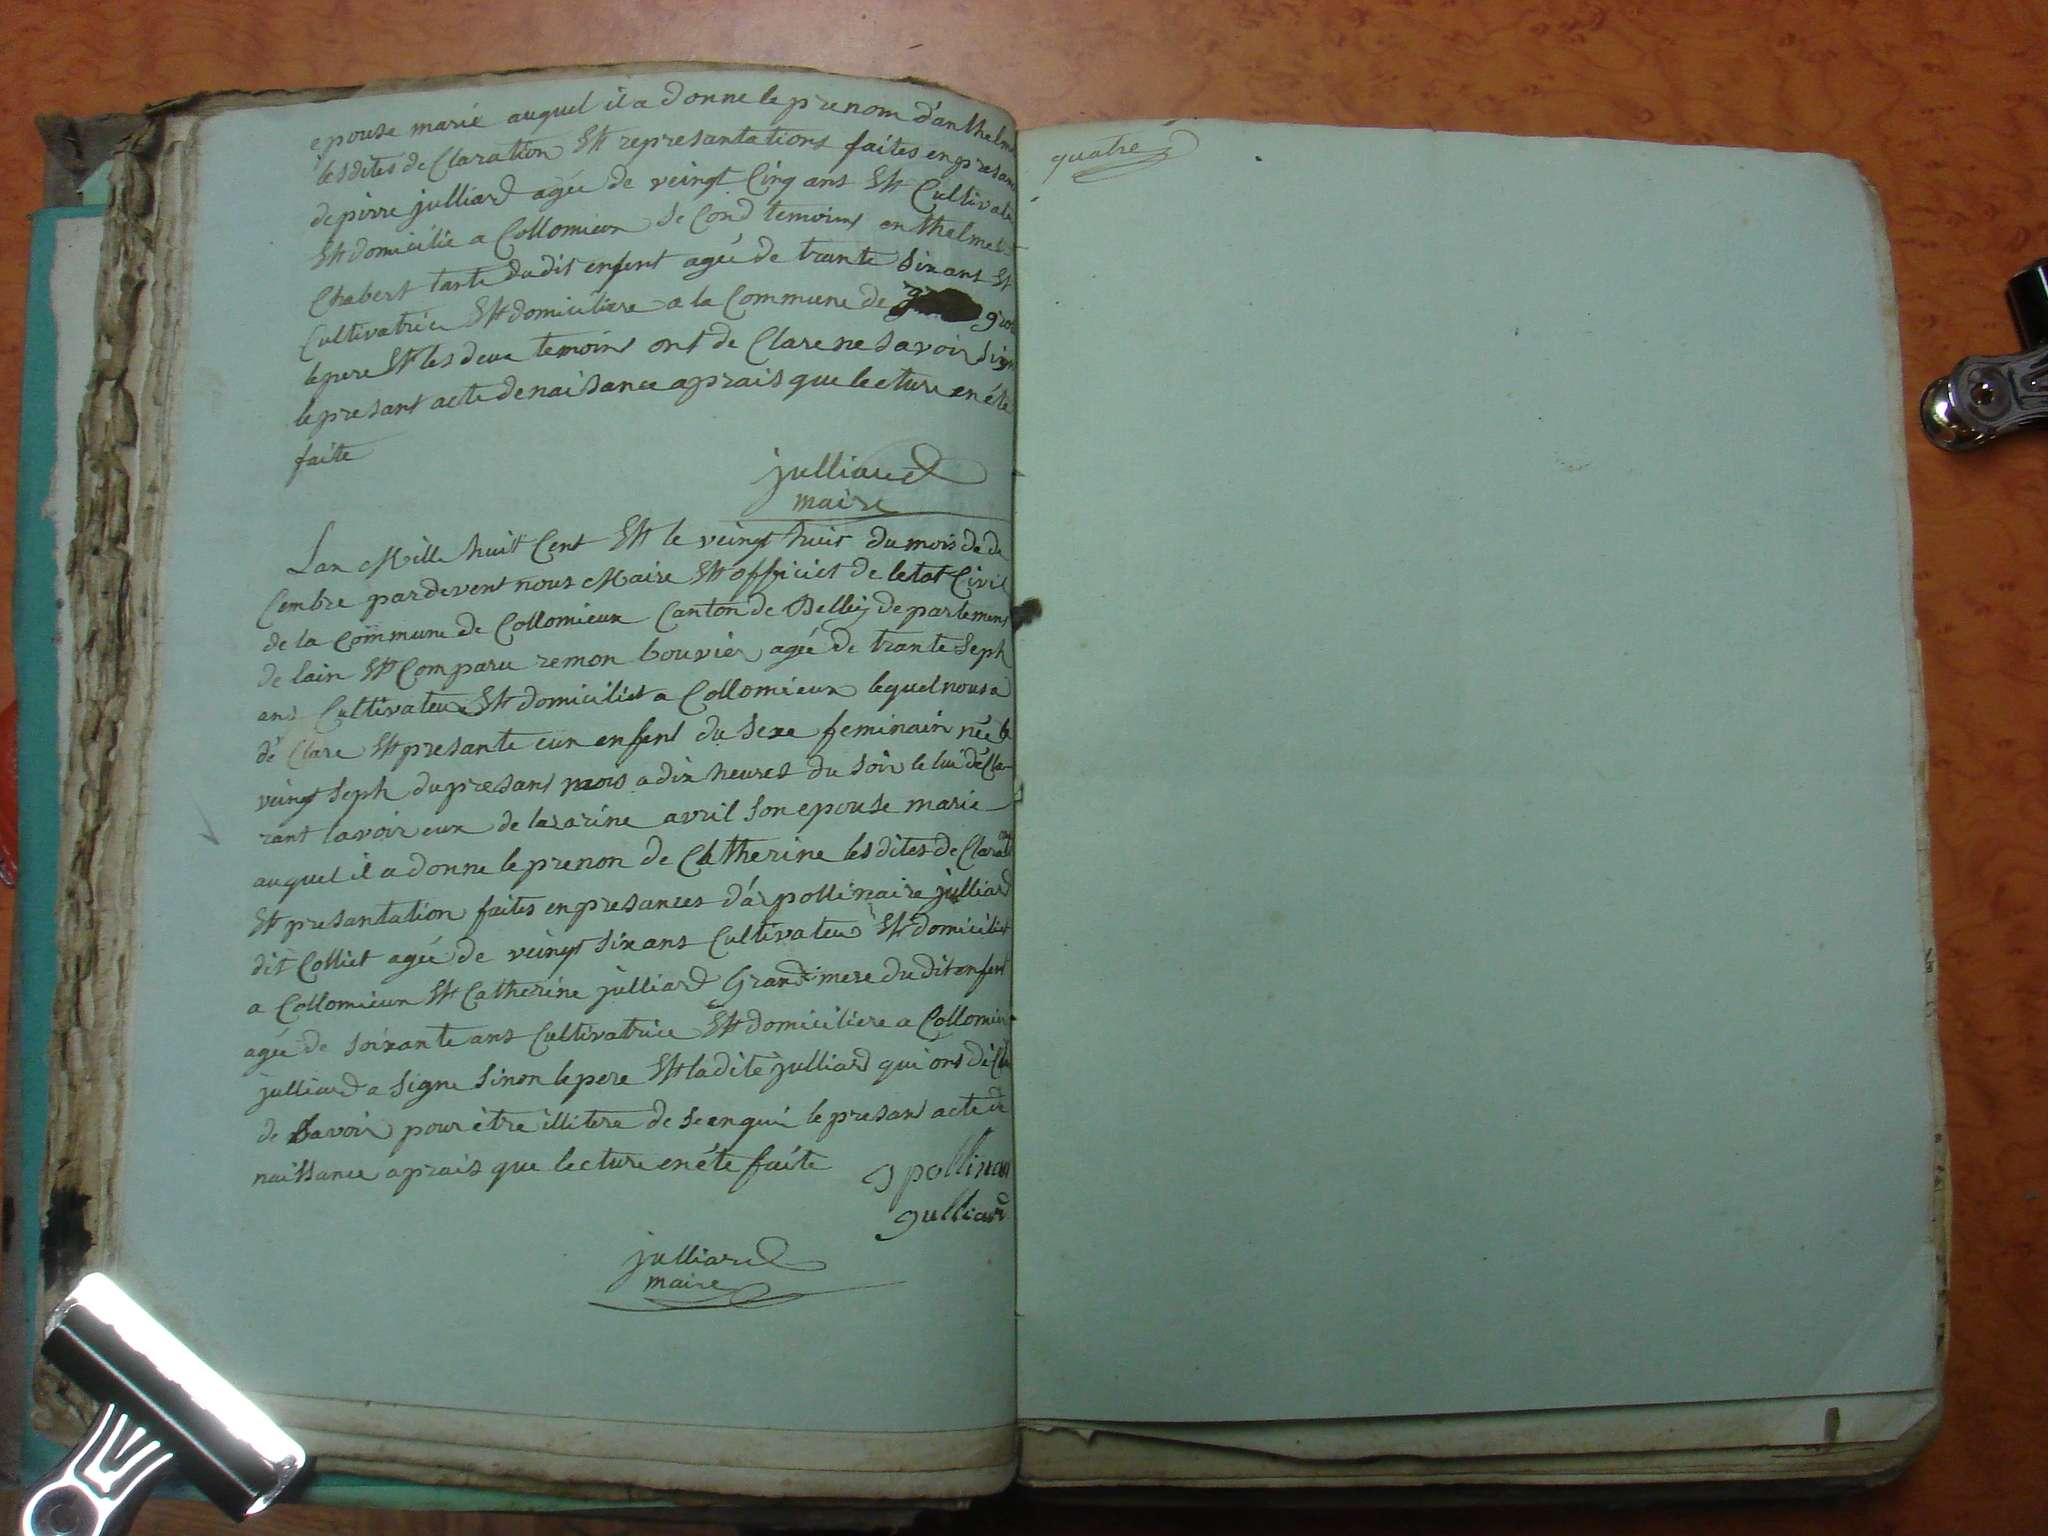 epouse marié auquel il a donne le prenom d'anthelme
lesdites de Claration Ett represantations faites en presan
de pirre julliard agée de veingt Cinq ans Ett Cultivate
Ett domicilié a Collomieux se Cond temoins enthelme
Chabert tante dudit enfent agée de trante six ans Et
Cultivatrice Ett domiciliere a la Commune de gros
le pere Ett les deux temoins ont de Clare ne savoir sign
le presant acte de naisance aprais que lecture en été
faite
julliard
maire
Lan Mille huit Cent Ett le veingt huit du mois de de
Cembre pardevent nous Maire Ett officiet de letat Civil
de la Commune de Collomieux Canton de Belley departement
de lain Ett Comparu remon bouvier agée de trante seph
ans Cultivateur Ett domiciliet a Collomieux lequel nous a
dé Clare Ett presante eun enfent du sexe feminain née le
veingt seph du presant mois a dix heures du soir le lui décla-
rant lavoir eux de lazarine avril son epouse marie
auquel il a donne le prenon de Catherine lesdites de Clarati
Ett presantation faites en presances d'apollinaire julliard
dit Colliet agée de veingt six ans Cultivateur Ett domiciliet
a Collomieux Ett Catherine julliard Grand mere du dit enfent
agée de soixante ans Cultivatrice Ett domiciliere a Collomieu
julliard a signe sinon le pere Ett ladite julliard qui ont déCla
de savoir pour être illitere de se enqui le presant acte de
naissance aprais que lecture en été faite
apollinai
julliard
julliard
maire
quatre